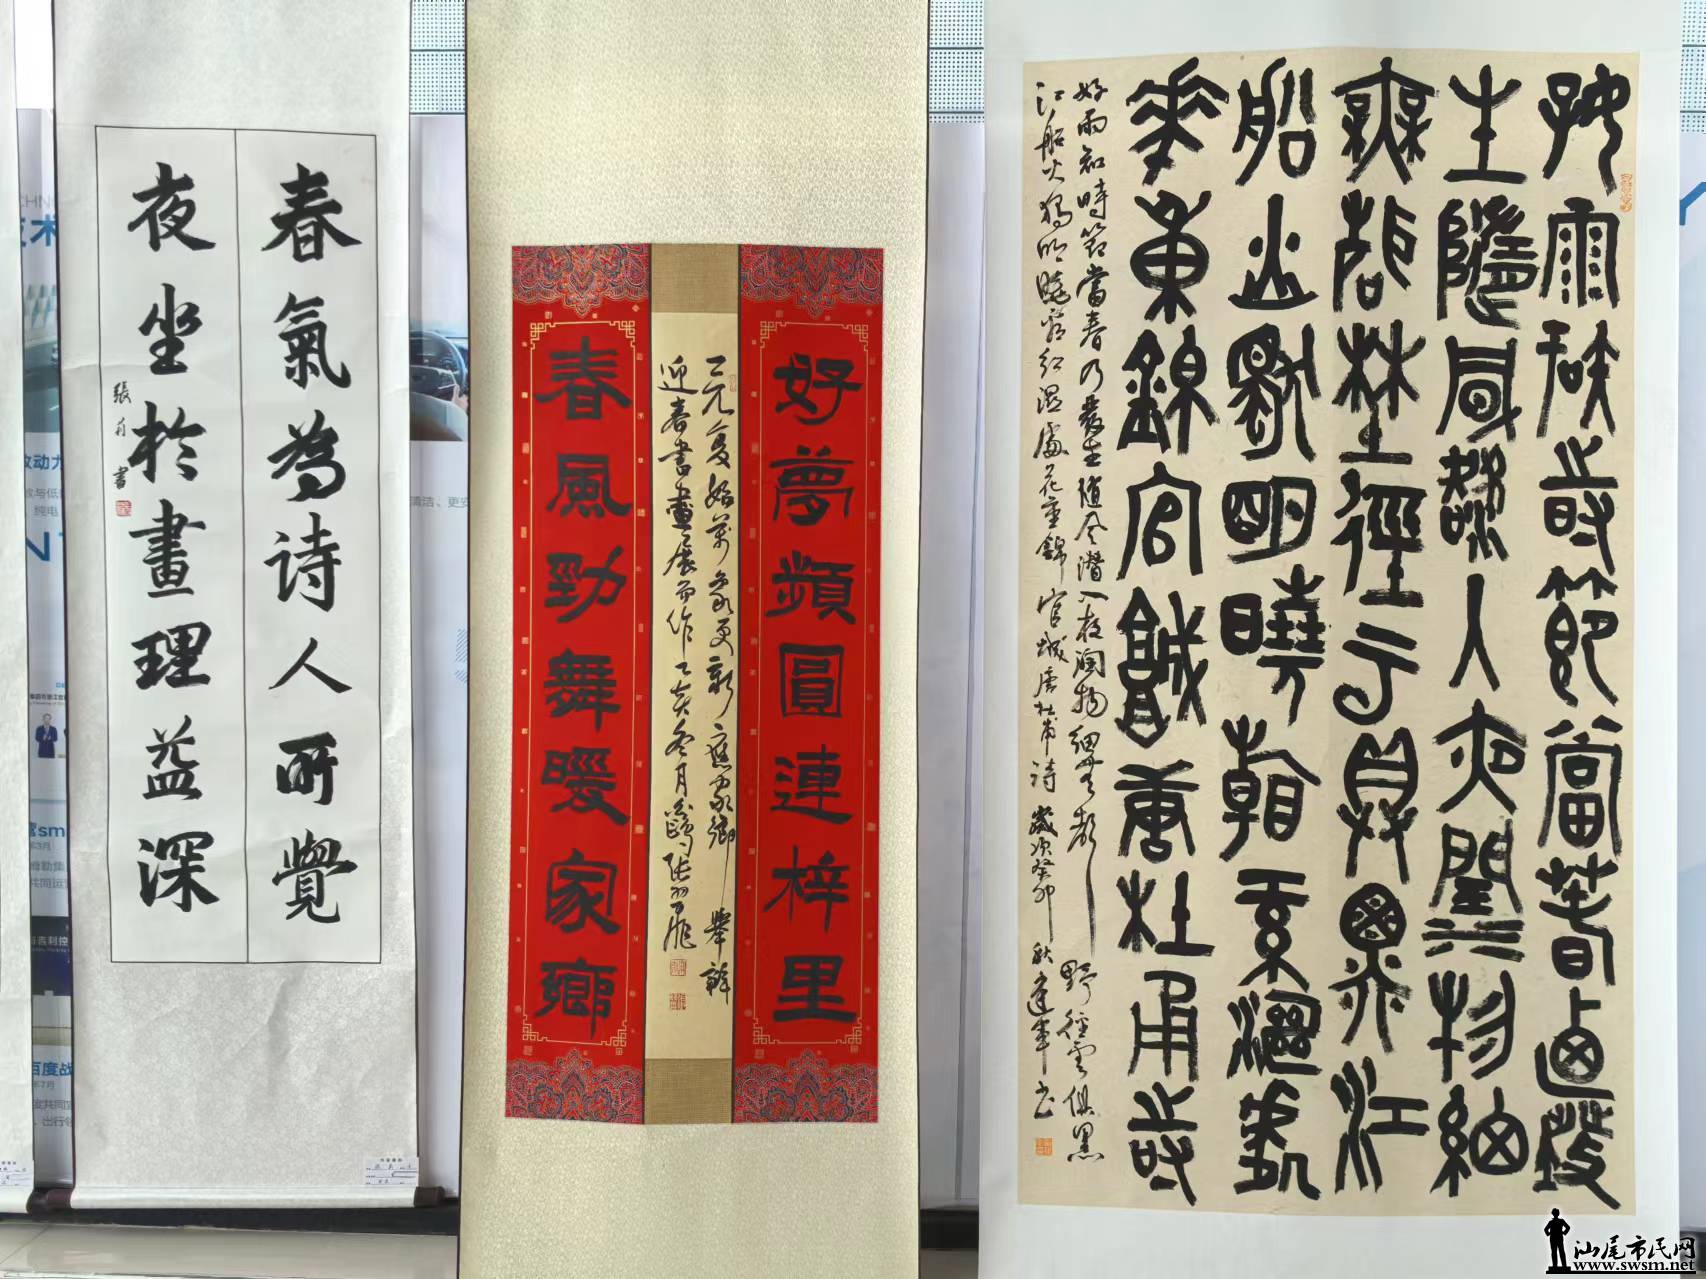 春氣為詩人所覺
夜坐於畫理益深
張 書
好夢頻圓連梓里
三元復始萬象更新應家鄉舉辦
迎春書畫展而作 亥冬月
春風勁舞暖家鄉
好雨知時節當春乃發
生隨風潛入夜潤物細
無聲埜徑云俱黑江
船火獨明曉看紅濕處
花重錦官城唐杜甫詩
好雨知時節當春乃發生隨風潛入夜潤物細無聲野徑雲俱黑
江船火獨明曉看紅濕處花重錦官城唐杜甫詩歲次癸卯秋 書
汕尾市民网
www.swsm.net